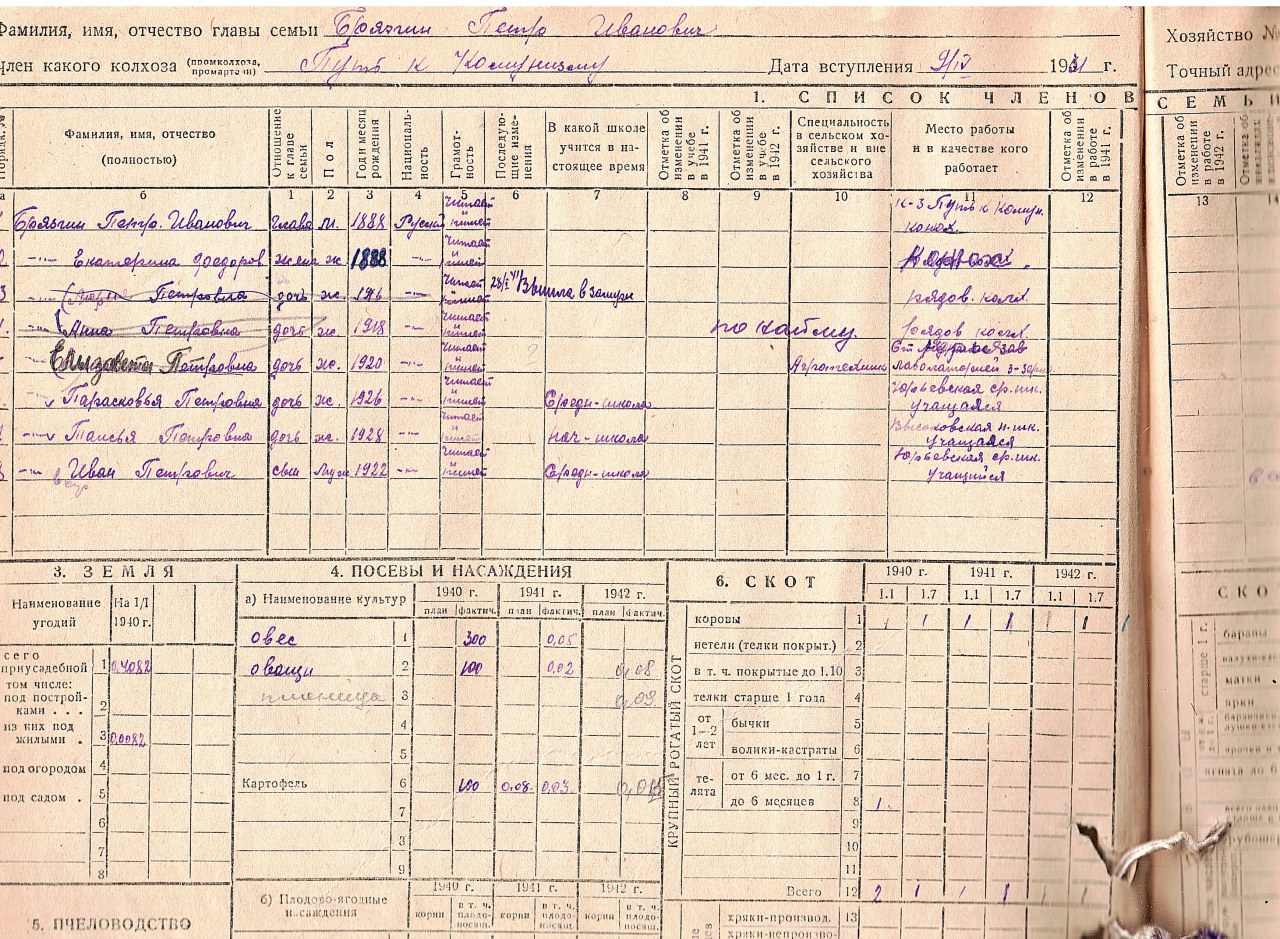 Фамилия, имя, отчество главы семьи Брязгин Петр Иванович
Член какого колхоза (промколхоза, промартели) Путь к Комунизму Дата вступления 9/IV 1931 г.
Хозяйство №
Точный адрес
1. СПИСОК ЧЛЕНОВ СЕМЬИ
Порядк. №
Фамилия, имя, отчество (полностью)
Отношение к главе семьи
Пол
Год и месяц рождения
Националь-ность
Грамот-ность
Последую-щие изме-нения
В какой школе учится в на-стоящее время
Отметка об изменении в учебе в 1941 г.
Отметка об изменении в учебе в 1942 г.
Специальность в сельском хо-зяйстве и вне сельского хозяйства
Место работы и в качестве кого работает
Отметка об изменении в работе в 1941 г.
Отметка об изменении в работе в 1942 г.
а б 1 2 3 4 5 6 7 8 9 10 11 12 13 14
Брязгин Петр. Иванович глава м. 1888 Руский читает пишет к-з Путь к Комун. конюх.
2 —"— Екатерина Федоров. жена ж 1888 —"— читает пишет
3 —"— Петровна дочь ж. 1916 —"— читает пишет 28/I Вышла в замуж рядов. колх.
—"— Анна Петровна дочь ж. 1918 —"— читает пишет по найму. рядов колх.
Елизавета Петровна дочь ж. 1920 —"— читает пишет Агротехник
—"— Парасковья Петровна дочь ж. 1926 —"— читает пишет Средн-школа Юрьевская ср. шк. учащаяся
—"— Таисья Петровна дочь ж. 1928 —"— читает пишет нач-школа Высоковская н. шк. учащаяся
8 —"— Иван Петрович сын муж 1922 —"— читает пишет Средн-школа Юрьевская ср. шк. учащийся
3. ЗЕМЛЯ
Наименование угодий На 1/I 1940 г.
всего приусадебной 1 0,4082
в том числе: под построй-ками . . . 2
из них под жилыми . 3 0,0082
под огородом 4
под садом . 5
6
7
8
5. ПЧЕЛОВОДСТВО
4. ПОСЕВЫ И НАСАЖДЕНИЯ
а) Наименование культур 1940 г. 1941 г. 1942 г.
план фактич. план фактич. план фактич.
овес 1 300 0,05
овощи 2 100 0,02 0,08
пшеница 3 0,03
4
5
Картофель 6 100 0,08 0,03
7
8
9
б) Плодово-ягодные насаждения 1940 г. 1941 г. 1942 г.
корни в т. ч. плодо-носящ. корни в т. ч. плодо-носящ. корни в т. ч. плодо-носящ.
6. СКОТ 1940 г. 1941 г. 1942 г.
1.1 1.7 1.1 1.7 1.1 1.7
КРУПНЫЙ РОГАТЫЙ СКОТ
коровы 1 1 1 1 1 1 1
нетели (телки покрыт.) 2
в т. ч. покрытые до 1.10 3
телки старше 1 года 4
от 1—2 лет бычки 5
волики-кастраты 6
те-лята от 6 мес. до 1 г. 7
до 6 месяцев 8 1
9
10
11
Всего 12 2 1 1 1 1 1
хряки-производ. 13
хряки-непроизво-
СКО
старше 1 г.
бараны
матки